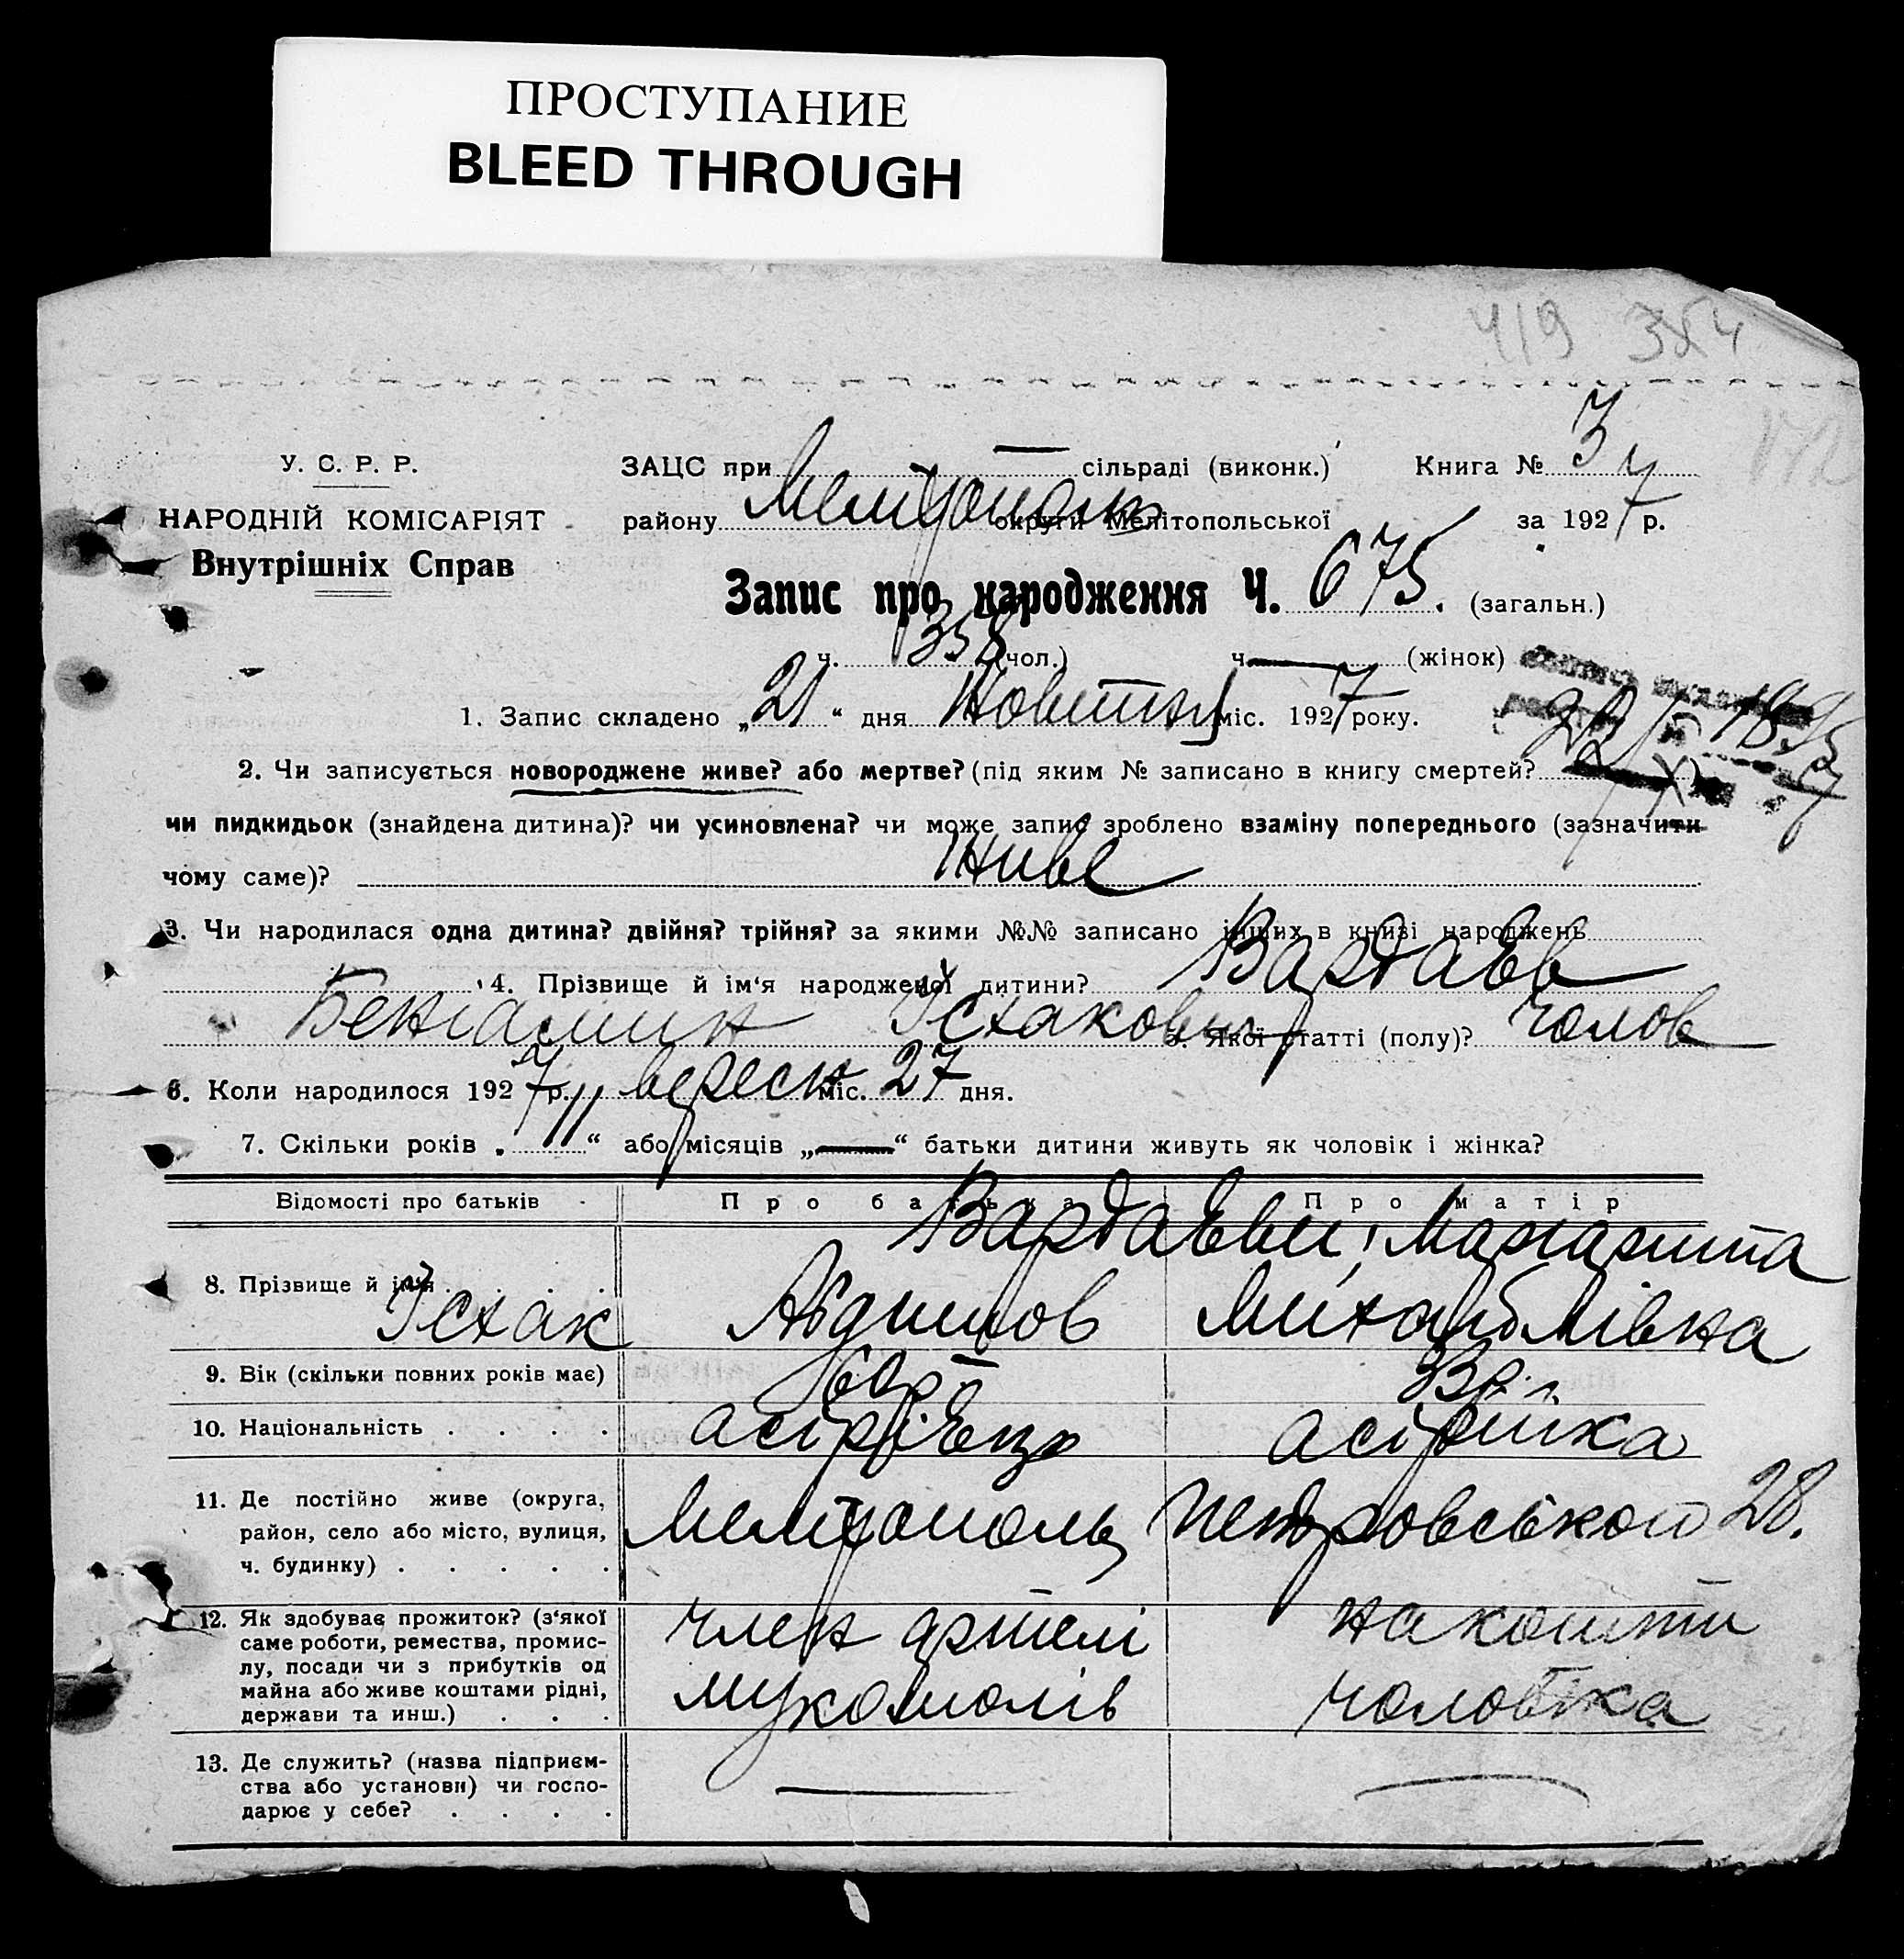 ПРОСТУПАНИЕ
BLEED THROUGH
419 354
172
У. С. Р. Р.
НАРОДНІЙ КОМІСАРІЯТ
Внутрішніх Справ
ЗАЦС при — сільраді (виконк.) Книга № 3
району Мелітопольськ округи Мелітопольської за 1927 р.
Запис про народження Ч. 675. (загальн.)
ч. 358 (чол.) ч. — (жінок)
1. Запис складено „21“ дня Жовтня міс. 1927 року.
2. Чи записується новороджене живе? або мертве? (під яким № записано в книгу смертей?
чи пидкидьок (знайдена дитина)? чи усиновлена? чи може запис зроблено взаміну попереднього (зазначити
чому саме)? живе
3. Чи народилася одна дитина? двійня? трійня? за якими №№ записано інших в книзі народжень
4. Прізвище й ім‘я народженої дитини? Вардаєв
Беніамин Ісхакович 5. Якої статті (полу)? чолов
6. Коли народилося 1927 р. вересн міс. 27 дня.
7. Скільки років „11“ або місяців „—“ батьки дитини живуть як чоловік і жінка?
Відомості про батьків Про батька Про матір
Вардаєви, Маргарита
8. Прізвище й ім‘я Ісхак Міхайлівна
9. Вік (скільки повних років має) 60р. 33р.
10. Національність . . . . асірієць асірійка
11. Де постійно живе (округа,
район, село або місто, вулиця,
ч. будинку) . . . . . Мелітополь Петровського 28.
12. Як здобуває прожиток? (з‘якої
саме роботи, ремества, промис-
лу, посади чи з прибутків од
майна або живе коштами рідні,
держави та инш.) . . . член артелі мукомолів на кошти чоловіка
13. Де служить? (назва підприєм-
ства або установи) чи госпо-
дарює у себе? . . . . — —